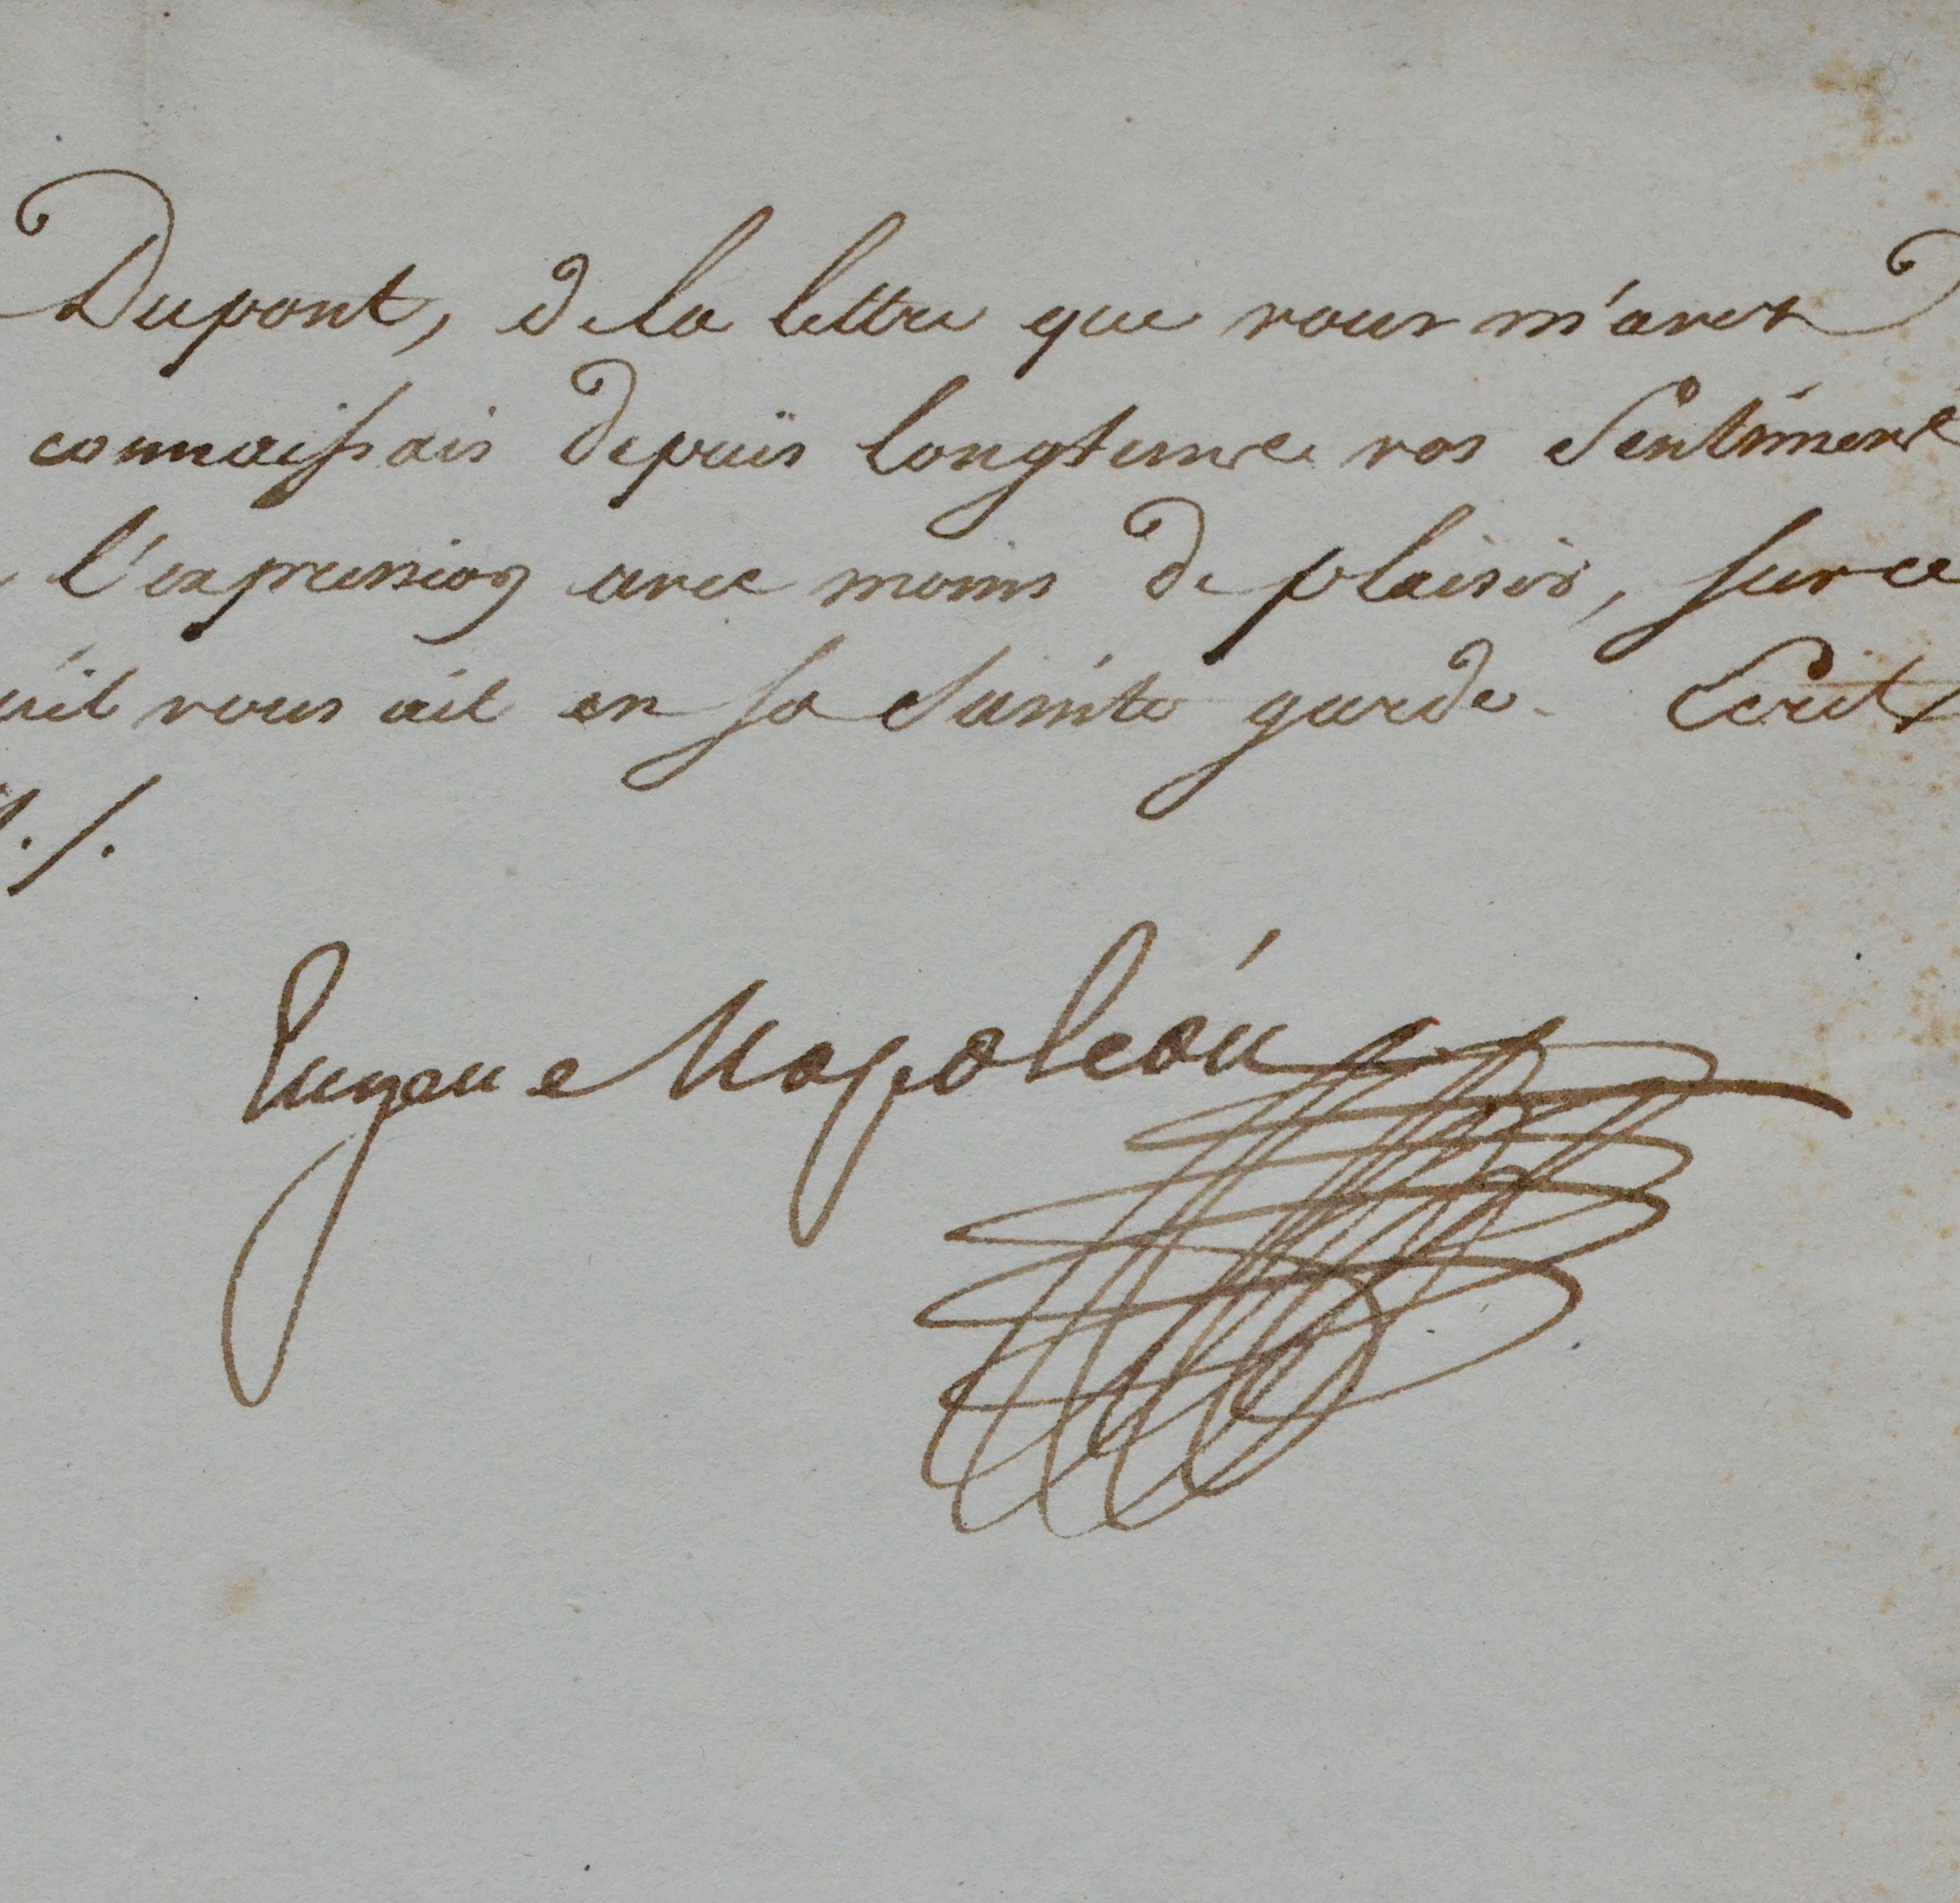 Dupont, de la lettre que vous m'avez
connaissais depuis longtems vos Sentimens
l'expression avec moins de plaisir, sur ce
u'il vous ait en sa Sainte garde. Ecrit
./.
Eugene Napoléon